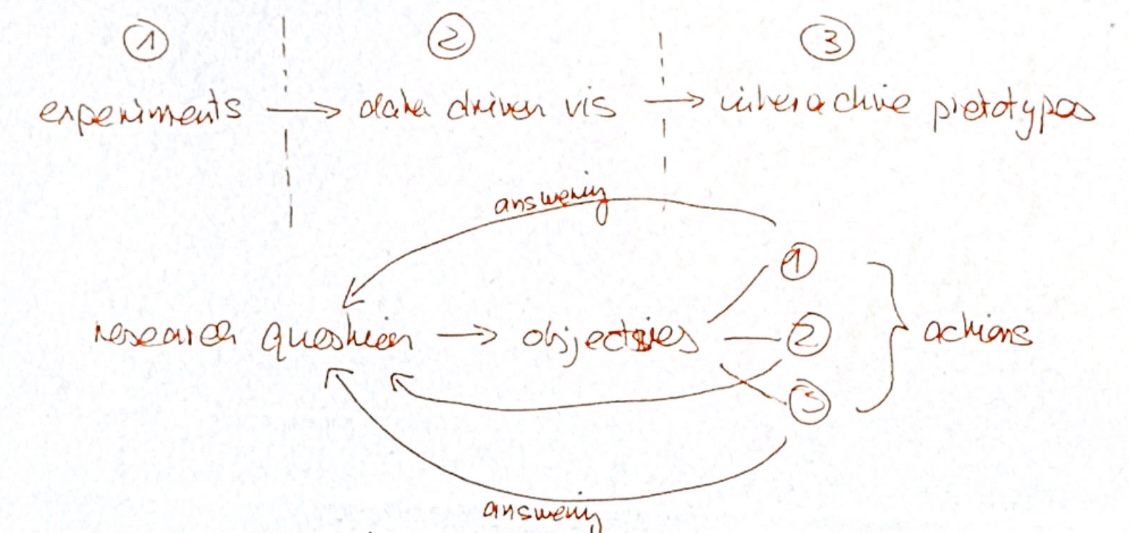 ① ② ③
experiments → data driven vis → interactive pretotypes
answering
①
research question → objectives ② actions
③
answering